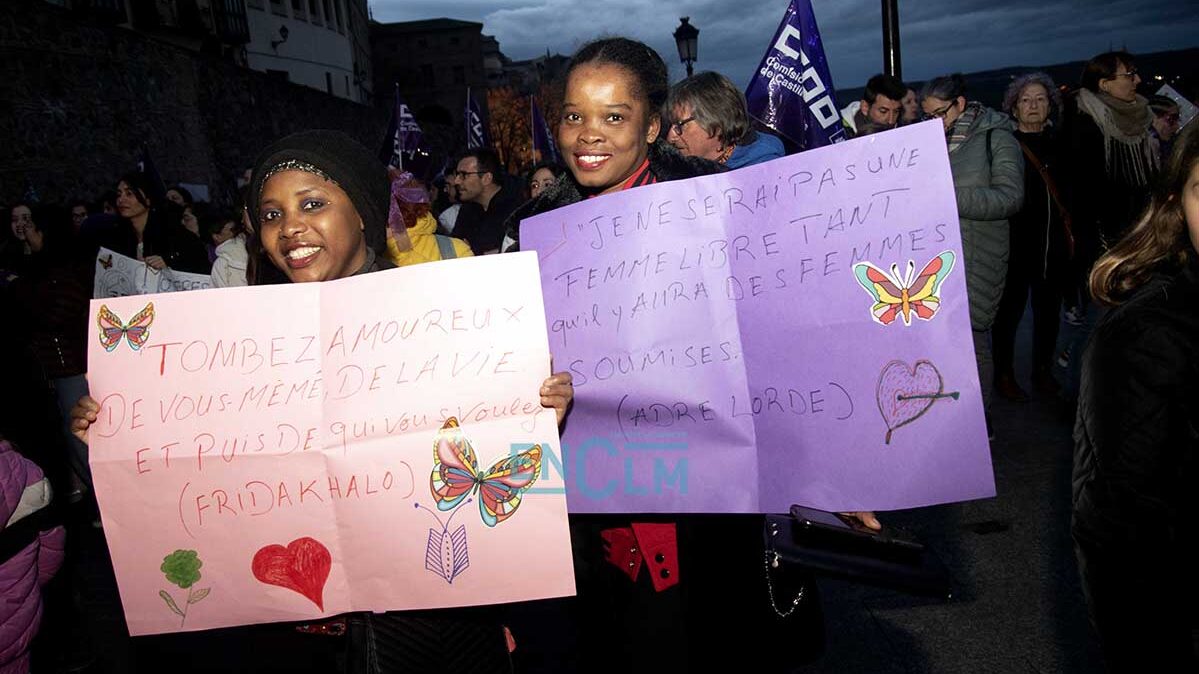 TOMBEZ AMOUREUX
DE VOUS-MÊMÉ, DE LA VIE
ET PUIS DE qui VOUS VOULEZ
(FRIDA KHALO)
JE NE SERAI PAS UNE
FEMME LIBRE TANT
qu'il y AURA DES FEMMES
SOUMISES.
(ADRE LORDE)
ENCLM
CCOO
Comisio
de Castilla